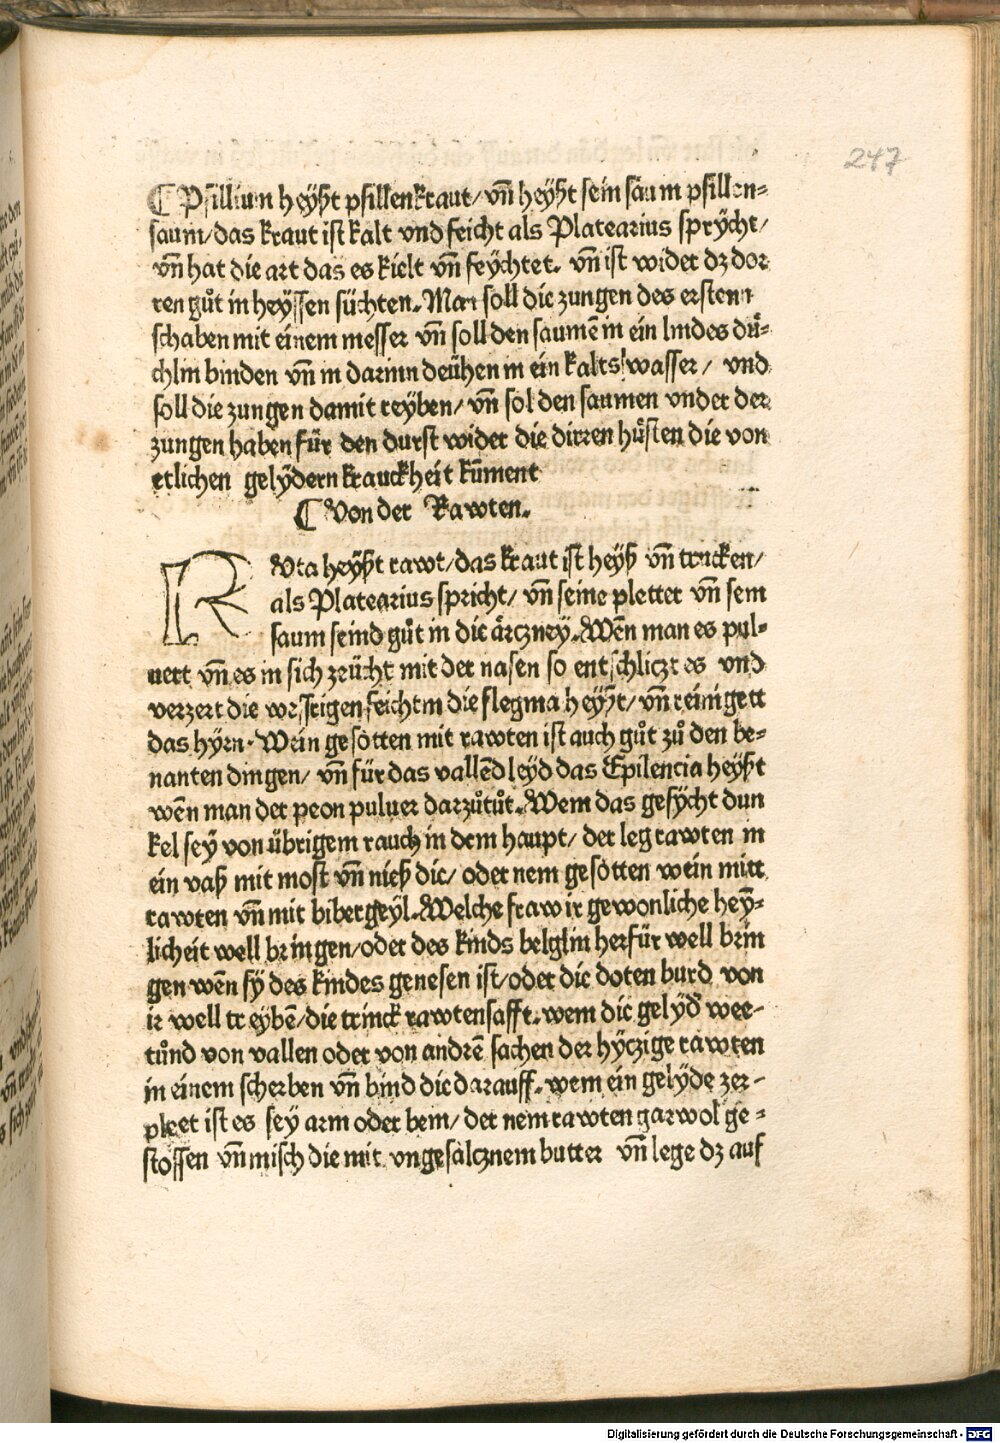 247
¶ Psillium heyßt psillenkraut/ vñ heyßt sein säum psillen⸗
saum/ das kraut ist kalt vnd feicht als Platearius sprÿcht/
vñ hat die art das es kielt vñ feÿchtet. vñ ist wider dz dor
ren gůt in heÿssen süchten. Man soll die zungen des ersten
schaben mit einem messer vñ soll den saumē in ein lindes dů⸗
chlin binden vñ in darinn deühen in ein kalts wasser/ vnd
soll die zungen damit reÿben/ vñ sol den saumen vnder der
zungen haben für den durst wider die dirren hůsten die von
etlichen gelÿdern kranckheit kūment
¶ Von der Rawten.
RVta heyßt rawt/ das kraut ist heÿß vñ trucken/
als Platearius spricht/ vñ seine pletter vñ sein
saum seind gůt in die ärczney. Wēn man es pul⸗
uert vñ es in sich zeücht mit der nasen so entschliczt es vnd
verzert die wesserigen feichtin die flegma heyßt/ vñ reinigett
das hÿrn. Wein gesotten mit rawten ist auch gůt zů den be⸗
nanten dingen/ vñ für das vallēd leÿd das Epilencia heÿßt
wēn man der peon puluer darzůtůt. Wem das gesÿcht dun
kel seÿ von übrigem rauch in dem haupt/ der leg rawten in
ein vaß mit most vñ nieß die/ oder nem gesotten wein mitt
rawten vñ mit bibergeÿl. Welche fraw ir gewonliche heÿ⸗
licheit well bringen/ oder des kinds belglin herfür well brin
gen wēn sÿ des kindes genesen ist/ oder die doten burd von
ir well treybē/ die trinck rawtensafft. wem die gelÿd wee⸗
tůnd von vallen oder von andrē sachen der hÿczige rawten
in einem scherben vñ bind die darauff. wem ein gelÿde zer⸗
pleet ist es sey arm oder bein/ der nem rawten gar wol ge⸗
stossen vñ misch die mit vngesalcznem butter vñ lege dz auf
Digitalisierung gefördert durch die Deutsche Forschungsgemeinschaft - DFG